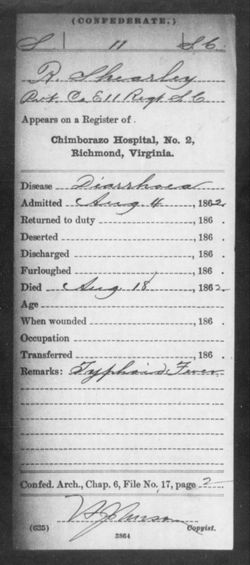 (CONFEDERATE.)
S 11 S.C.
R. Shearley
Pvt. Co E 11 Regt S C
Appears on a Register of
Chimborazo Hospital, No. 2,
Richmond, Virginia.
Disease Diarrhoea
Admitted Aug 4, 1862.
Returned to duty, 186
Deserted, 186
Discharged, 186
Furloughed, 186
Died Aug 18, 1862.
Age
When wounded, 186
Occupation
Transferred, 186
Remarks: Typhoid Fever
Confed. Arch., Chap. 6, File No. 17, page 2
(635) Copyist.
3864